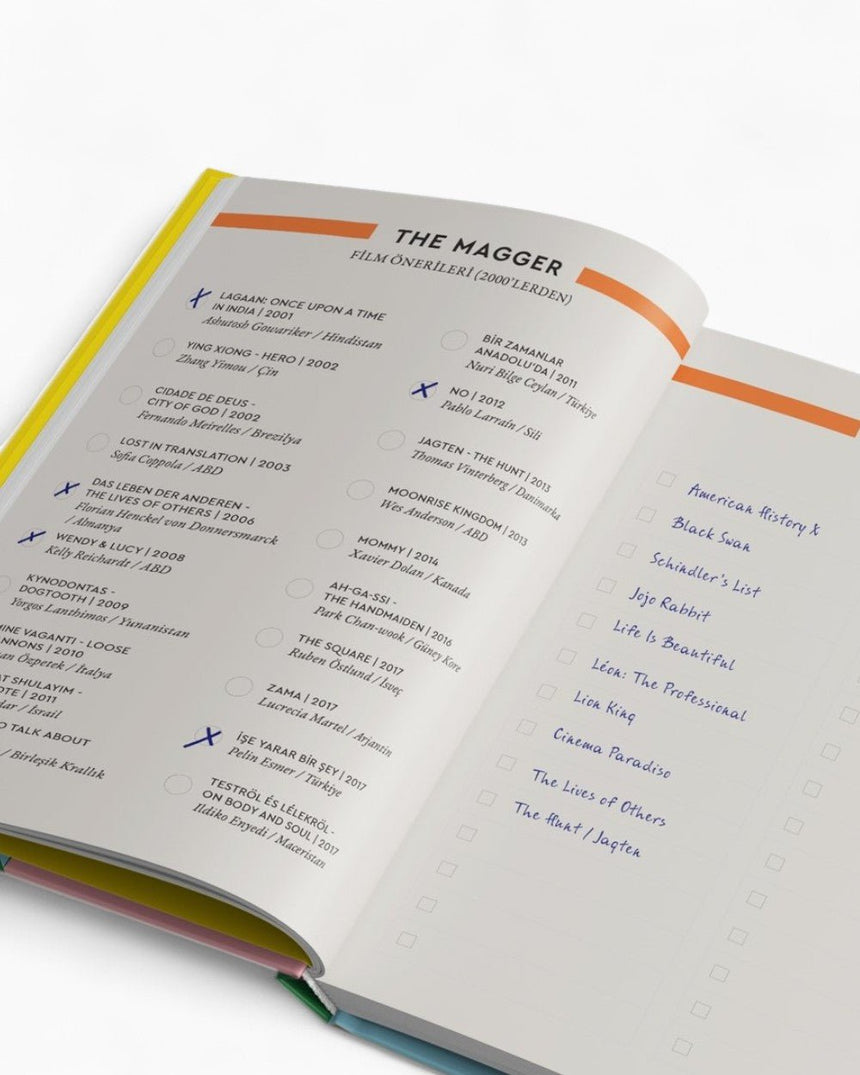 THE MAGGER
FİLM ÖNERİLERİ (2000'LERDEN)
LAGAAN: ONCE UPON A TIME
IN INDIA | 2001
Ashutosh Gowariker / Hindistan
YING XIONG - HERO | 2002
Zhang Yimou / Çin
CIDADE DE DEUS -
CITY OF GOD | 2002
Fernando Meirelles / Brezilya
LOST IN TRANSLATION | 2003
Sofia Coppola / ABD
DAS LEBEN DER ANDEREN -
THE LIVES OF OTHERS | 2006
Florian Henckel von Donnersmarck
/ Almanya
WENDY & LUCY | 2008
Kelly Reichardt / ABD
KYNODONTAS -
DOGTOOTH | 2009
Yorgos Lanthimos / Yunanistan
VAGANTI - LOOSE
| 2010
Özpetek / İtalya
SHULAYIM -
| 2011
/ İsrail
TALK ABOUT
/ Birleşik Krallık
BİR ZAMANLAR
ANADOLU'DA | 2011
Nuri Bilge Ceylan / Türkiye
NO | 2012
Pablo Larraín / Şili
JAGTEN - THE HUNT | 2013
Thomas Vinterberg / Danimarka
MOONRISE KINGDOM | 2013
Wes Anderson / ABD
MOMMY | 2014
Xavier Dolan / Kanada
AH-GA-SSI -
THE HANDMAIDEN | 2016
Park Chan-wook / Güney Kore
THE SQUARE | 2017
Ruben Östlund / İsveç
ZAMA | 2017
Lucrecia Martel / Arjantin
İŞE YARAR BİR ŞEY | 2017
Pelin Esmer / Türkiye
TESTRŐL ÉS LÉLEKRŐL-
ON BODY AND SOUL | 2017
Ildiko Enyedi / Macaristan
American History X
Black Swan
Schindler's List
Jojo Rabbit
Life Is Beautiful
Léon: The Professional
Lion King
Cinema Paradiso
The Lives of Others
The Hunt / Jagten